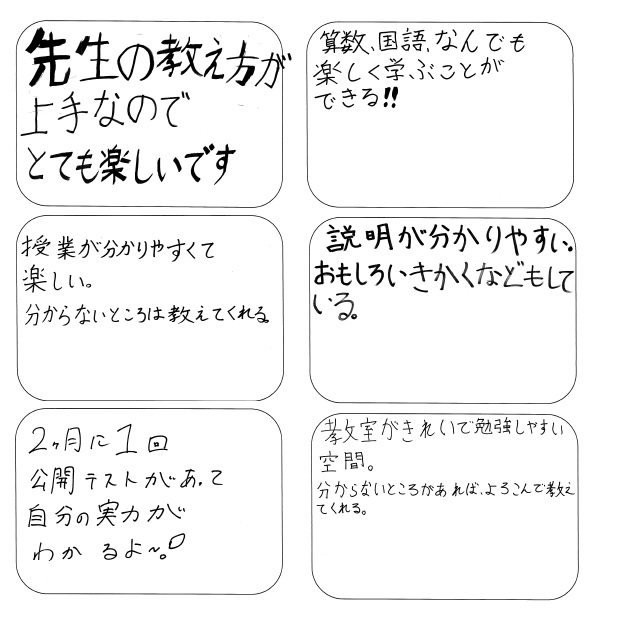 先生の教え方が
上手なので
とても楽しいです
算数、国語、なんでも
楽しく学ぶことが
できる!!
授業が分かりやすくて
楽しい。
分からないところは教えてくれる。
説明が分かりやすい。
おもしろいきかくなどもして
いる。
2ヶ月に1回
公開テストがあって
自分の実力が
わかるよ〜。
教室がきれいで勉強しやすい
空間。
分からないところがあれば、よろこんで教え
てくれる。